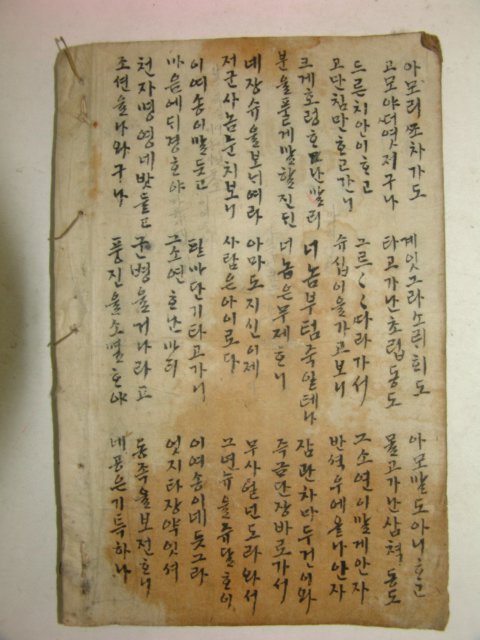 아모리ᄶᅩ차가도 계잇그라소ᄅᆡ희도 아모말도아니ᄒᆞ고
고모야더엿저구나 타고가난초립동도 몰고가난삼쳑동도
드른치안이ᄒᆞ고 그른〻따라가서 그소연이말게안자
고단침만ᄒᆞ고간니 슈십이을가고보니 반석우에올나안자
크게호령ᄒᆞ난말리 너놈부텀죽일테나 잠관차마두건이와
분을풀게말할진딘 너놈은무제ᄒᆞ니 주금단장바로가서
네장슈을보ᄂᆡ여라 아마도지신이제 무사일년도라와서
저군사놈눈치보니 사람은아이로다 그연슈을쥬달ᄒᆞ이
이여송이말듯고 필마단기타고가니 이여송이네듯그라
마음에ᄃᆡ경ᄒᆞ야 그소연ᄒᆞ난마리 엇지타장약잇셔
천자명영네밧들고 군병을거나라고 동족을보전ᄒᆞ니
조션을나와구나 풍진을소멸ᄒᆞ야 네공은기특하나